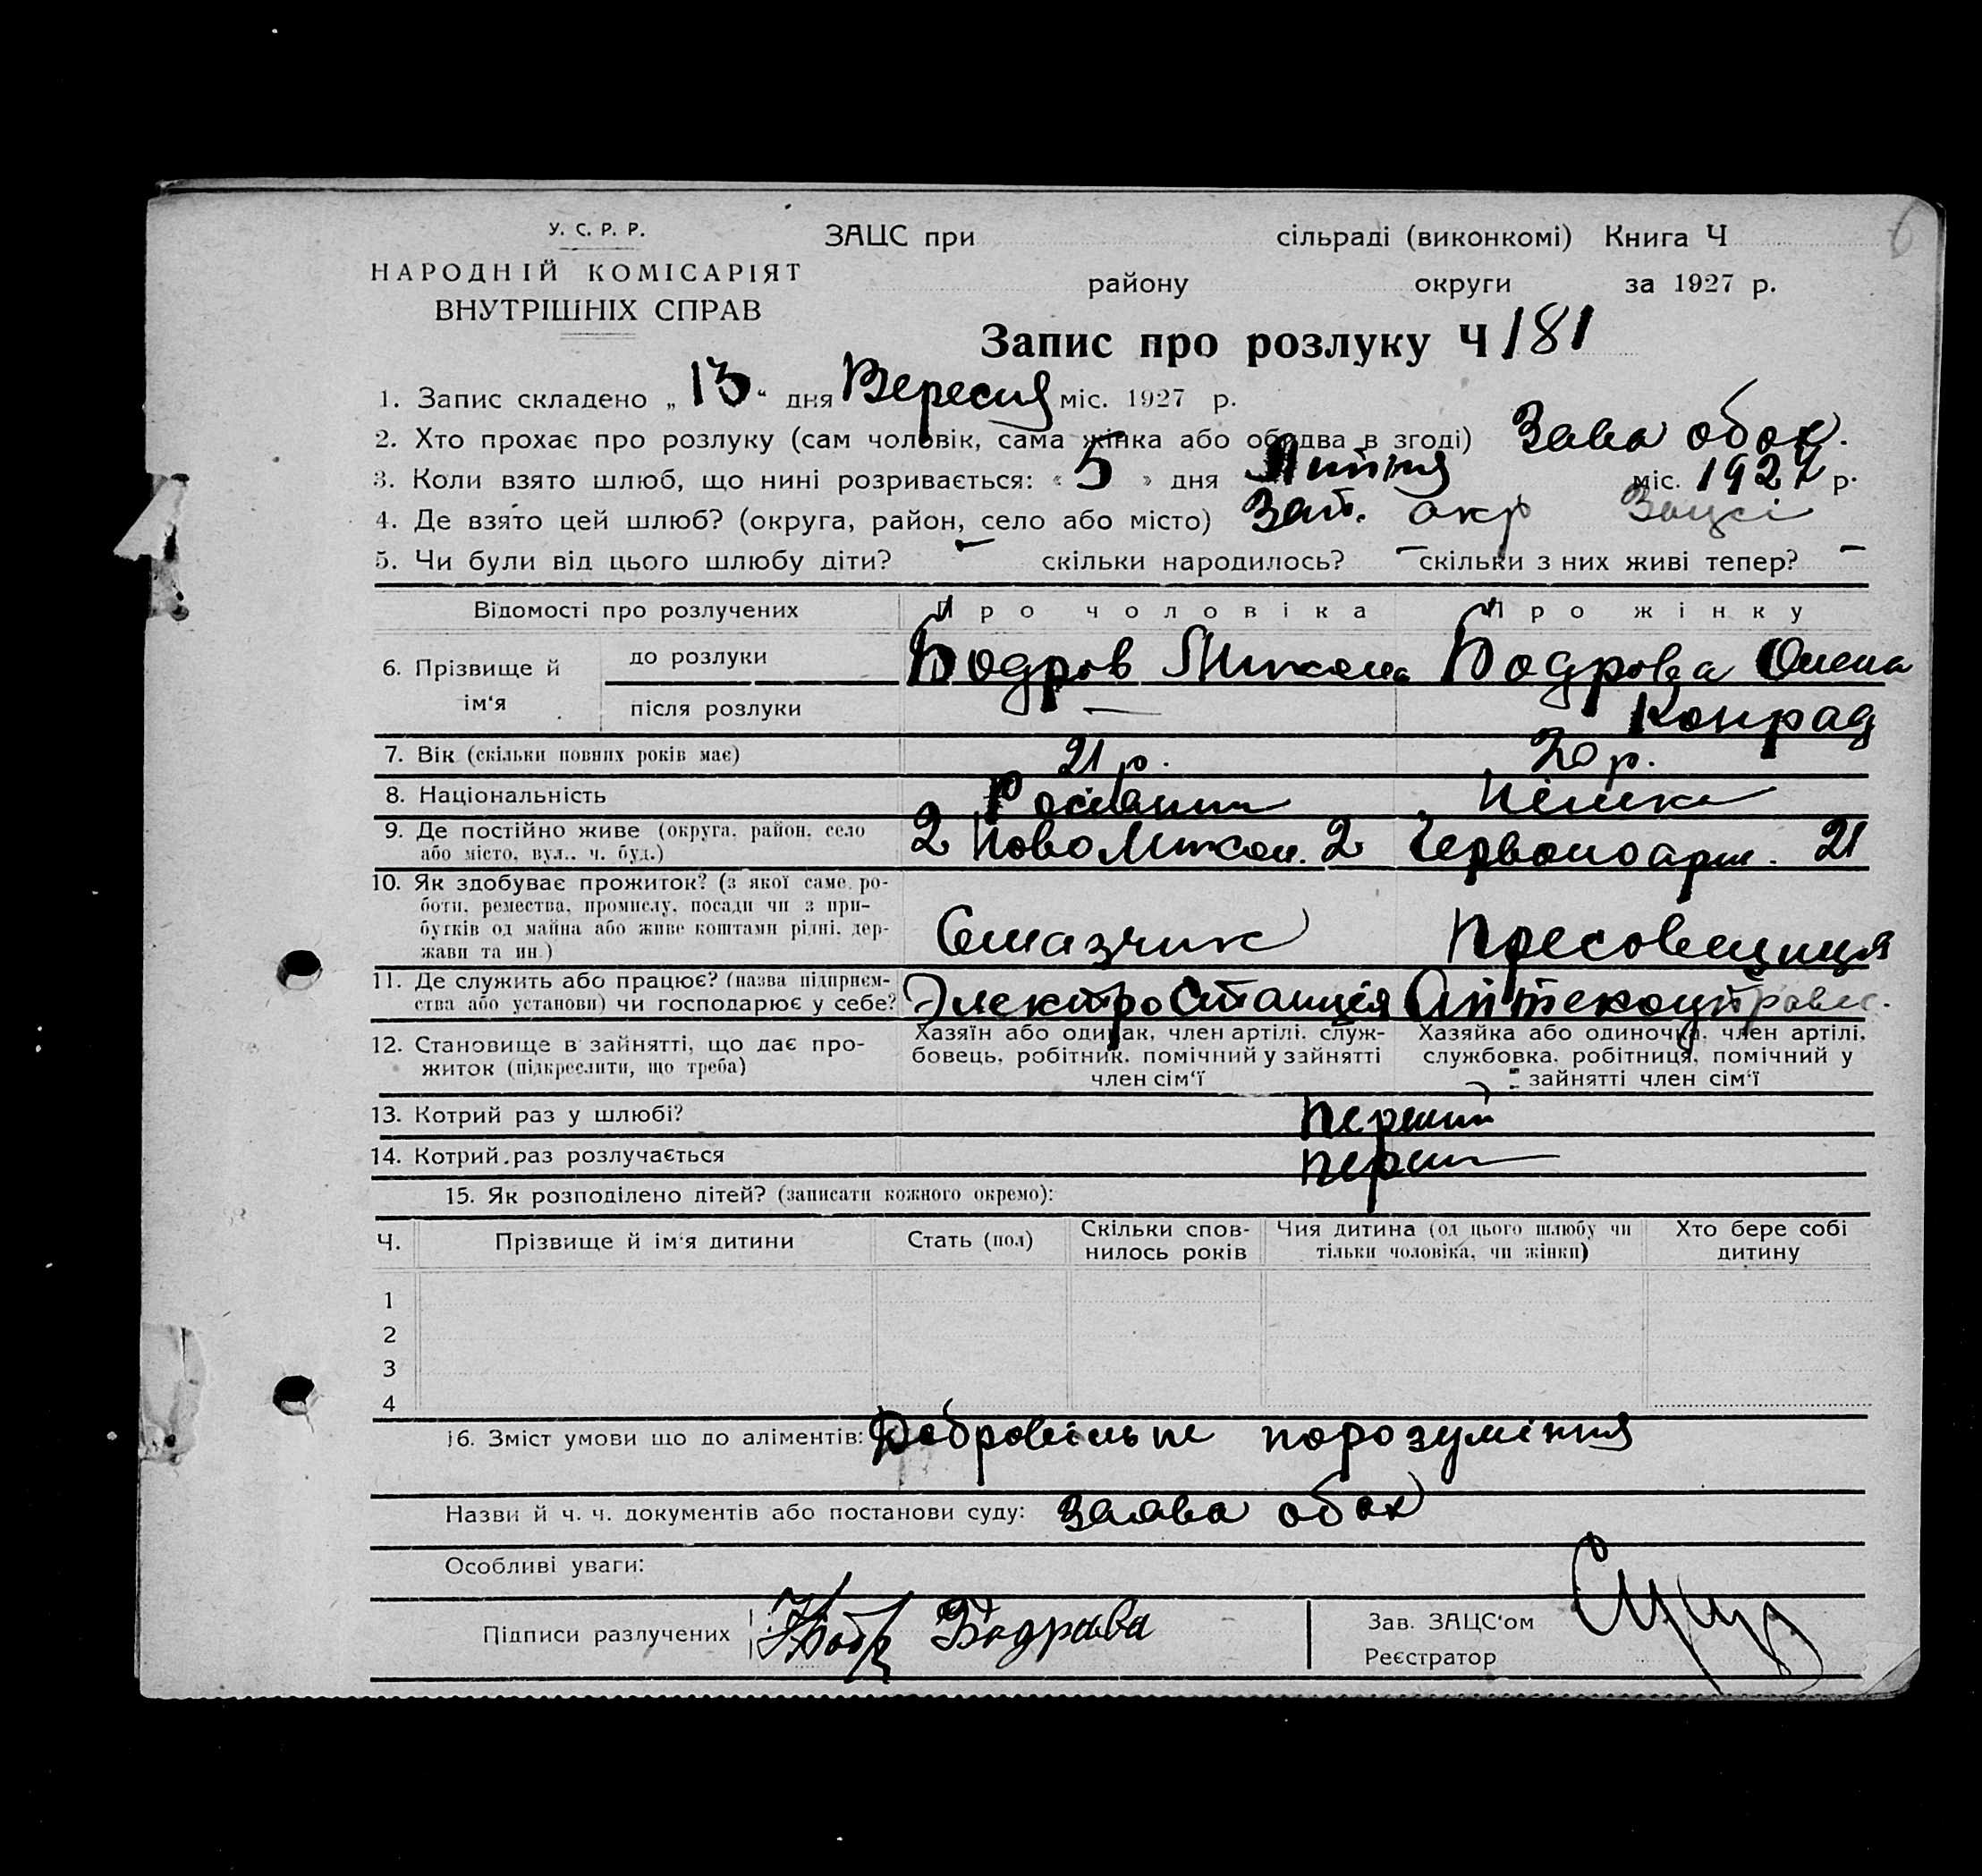 У. С. Р. Р.
НАРОДНІЙ КОМІСАРІЯТ
ВНУТРІШНІХ СПРАВ
ЗАЦС при сільраді (виконкомі) Книга Ч 6
району округи за 1927 р.
Запис про розлуку Ч 181
1. Запис складено „13“ дня Вересня міс. 1927 р.
2. Хто прохає про розлуку (сам чоловік, сама жінка або обидва в згоді) Заява обох.
3. Коли взято шлюб, що нині розривається: «5» дня Липня міс. 1927 р.
4. Де взято цей шлюб? (округа, район, село або місто) Зап. окр Зацсі
5. Чи були від цього шлюбу діти? — скільки народилось? — скільки з них живі тепер? —
Відомості про розлучених Про чоловіка Про жінку
6. Прізвище й ім‘я до розлуки Бодров Микола Бодрова Олена
після розлуки — Конрад
7. Вік (скільки повних років має) 21 р. 20 р.
8. Національність Росіянин Німка
9. Де постійно живе (округа, район, село 2 НовоМикол. 2 Червоноарм. 21
або місто, вул., ч. буд.)
10. Як здобуває прожиток? (з якої саме ро-
боти, ремества, промислу, посади чи з при-
бутків од майна або живе коштами рідні, дер-
жави та ин.) Смазчик Пресовщиця
11. Де служить або працює? (назва підприєм-
ства або установи) чи господарює у себе? ЭлектроСтанція
12. Становище в зайнятті, що дає про-
житок (підкреслити, що треба)
Хазяїн або одинак, член артілі, служ-
бовець, робітник, помічний у зайнятті
член сім‘ї
Хазяйка або одиночка, член артілі,
службовка, робітниця, помічний у
зайнятті член сім‘ї
13. Котрий раз у шлюбі? перший
14. Котрий раз розлучається перш
15. Як розподілено дітей? (записати кожного окремо):
Ч. Прізвище й ім‘я дитини Стать (пол) Скільки спов-
нилось років Чия дитина (од цього шлюбу чи
тільки чоловіка, чи жінки) Хто бере собі
дитину
1
2
3
4
16. Зміст умови що до аліментів: Добровільне порозуміння
Назви й ч. ч. документів або постанови суду: Заява обох
Особливі уваги:
Підписи разлучених Бодрова
Зав. ЗАЦС‘ом
Реєстратор